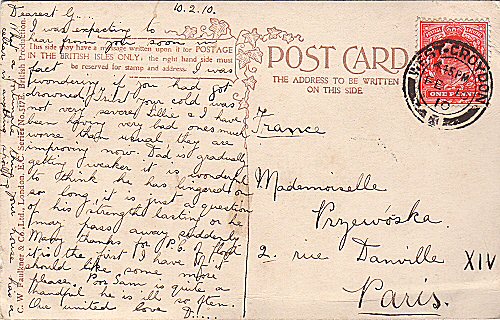 Dearest G.... 10.2.10.
I was expecting to
hear from you soon
This side may have a message written upon it for POSTAGE
IN THE BRITISH ISLES ONLY; the right hand side must
be reserved for stamp and address.
fact I was
wondering if you had got
drowned! Trust your cold was
not very severe. Lillie & I have
been having very bad ones much
worse than usual they are
improving now. Dad is gradually
getting weaker it is wonderful
to think he has lingered on
so long, it is just a question
of his strength lasting or he
may pass away suddenly
Many thanks for P.C. of flood
it is the first I have of it
should like some more
please. Poor Sam is quite a
handful he is ill so often.
Our united love D....
C. W. Faulkner & Co., Ltd., London, E.C. Series No. British Production.
POST CARD
THE ADDRESS TO BE WRITTEN
ON THIS SIDE.
WEST CROYDON
FE
10
ONE PENNY
France
Mademoiselle
Przewóska.
2. rue Danville
XIV
Paris.